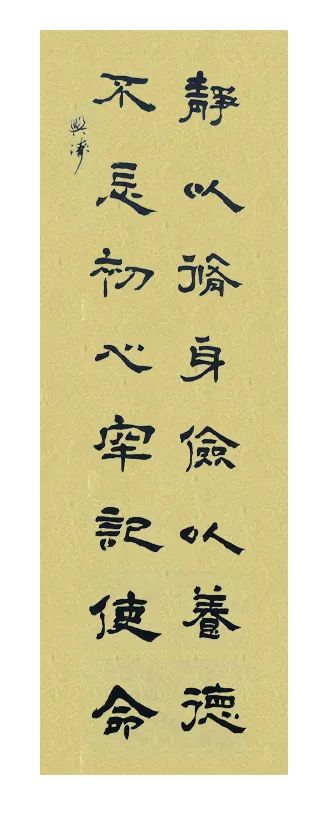 靜以脩身儉以養德
不忘初心牢記使命